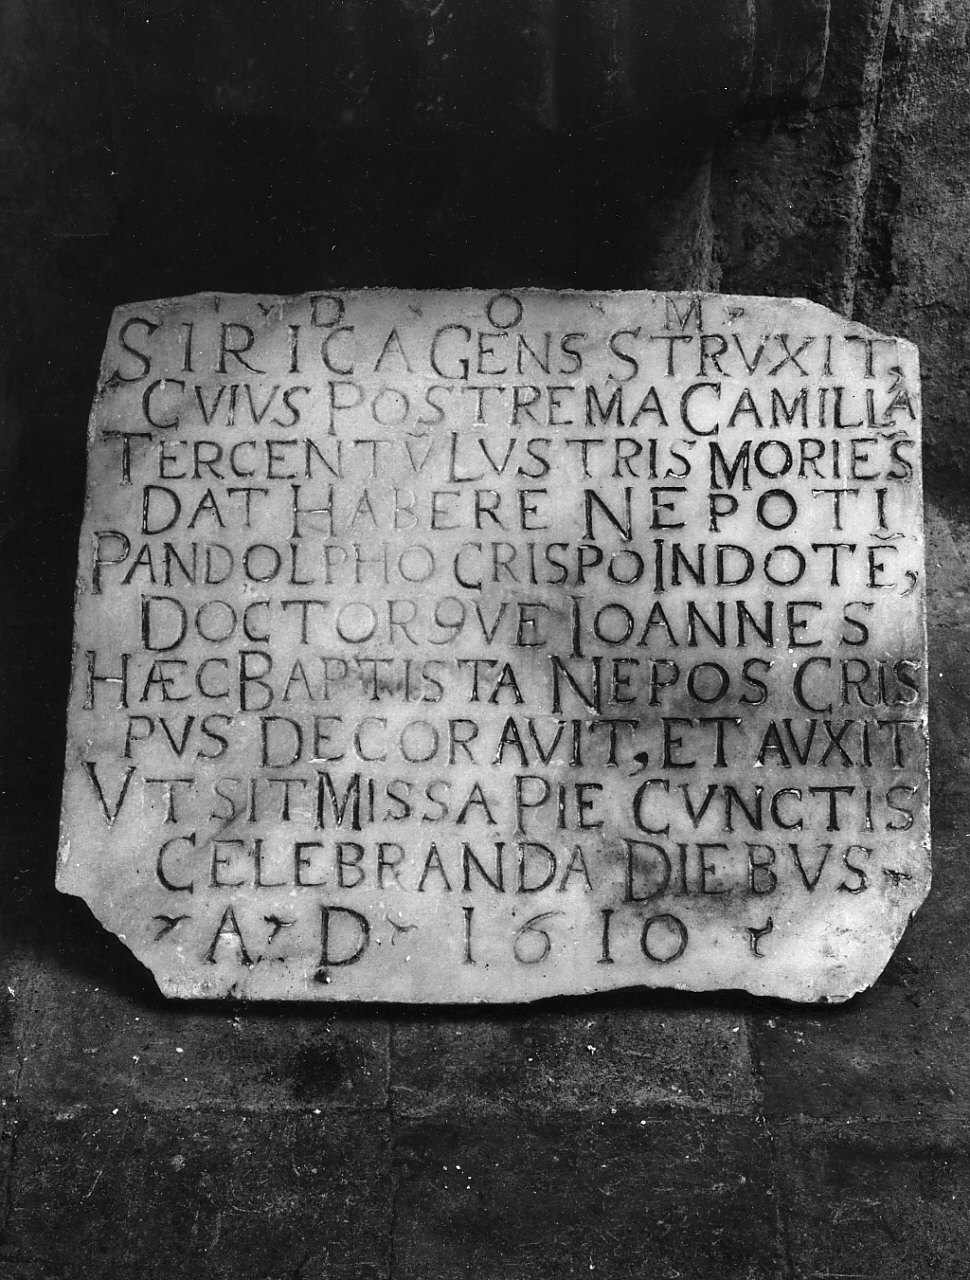 D O M
SIRICA GENS STRVXIT,
CVIVS POSTREMA CAMILLA
TERCENTV̄ LVSTRIS MORIẼS
DAT HABERE NEPOTI
PANDOLPHO CRISPO INDOTẼ,
DOCTORQVE IOANNES
HÆC BAPTISTA NEPOS CRIS
PVS DECORAVIT, ET AVXIT
VT SIT MISSA PIE CVNCTIS
CELEBRANDA DIEBVS
A D 1610